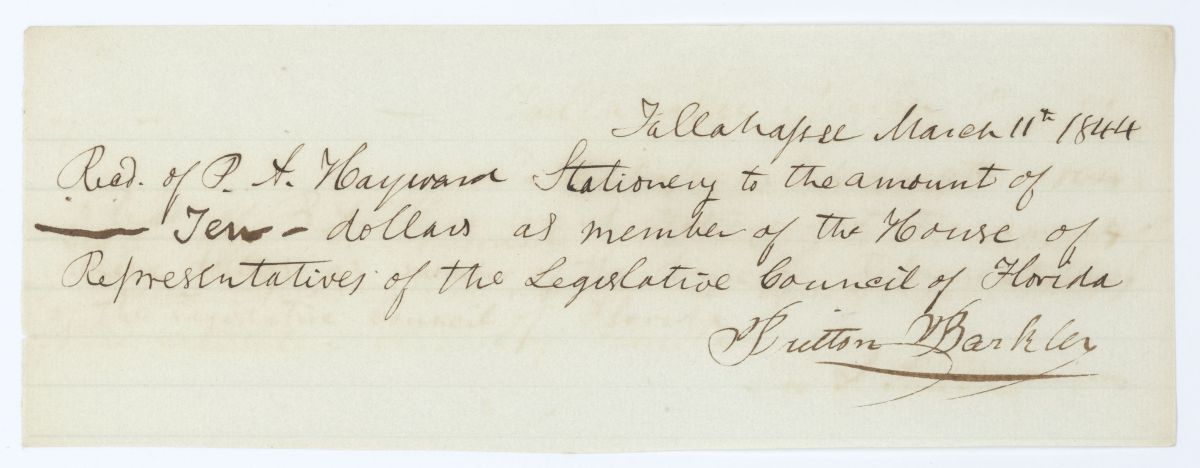 Tallahassee March 11th 1844
Recd. of P. A. Hayward Stationery to the amount of
— Ten – dollars as member of the House of
Representatives of the Legislative Council of Florida
Barkley